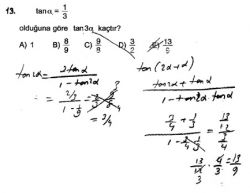 13. tanα = 1/3
olduğuna göre tan3α kaçtır?
A) 1 B) 8/9 C) 9/8 D) 3/2 E) 13/9
tan2α = 2tanα / 1 - tan²α
= 2/3 / 1 - 1/9
= 3/4
tan(2α + α)
tan2α + tanα / 1 - tan2α · tanα
3/4 + 1/3 / 1 - 3/4 · 1/3 = 13/12 / 3/4
13/12 · 4/3 = 13/9